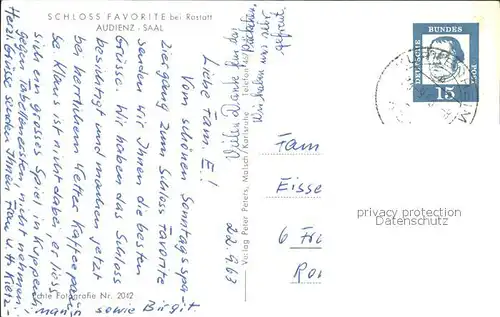 SCHLOSS FAVORITE bei Rastatt
AUDIENZ-SAAL
22.9.63
Liebe Fam. E.!
Vom schönen Sonntagsspa-
ziergang zum Schloss Favorite
senden wir Ihnen die besten
Grüsse. Wir haben das Schloss
besichtigt und machen jetzt
bei herrlichem Wetter Kaffeepau-
se. Klaus ist nicht dabei, er liess
sich ein grosses Spiel in Kuppenh.
gegen Tabellenersten, nicht nehmen.
Herzl. Grüsse senden Ihnen Frau u. H. Kierz-
mann sowie Birgit.
Vielen Dank für das
Päckchen.
Wir haben uns sehr
gefreut.
Echte Fotografie Nr. 2042
Verlag Peter Peters, Malsch/Karlsruhe
Telefon
DEUTSCHE BUNDESPOST
15
Fam
Eisse
6 Fr
Ro
privacy protection
Datenschutz